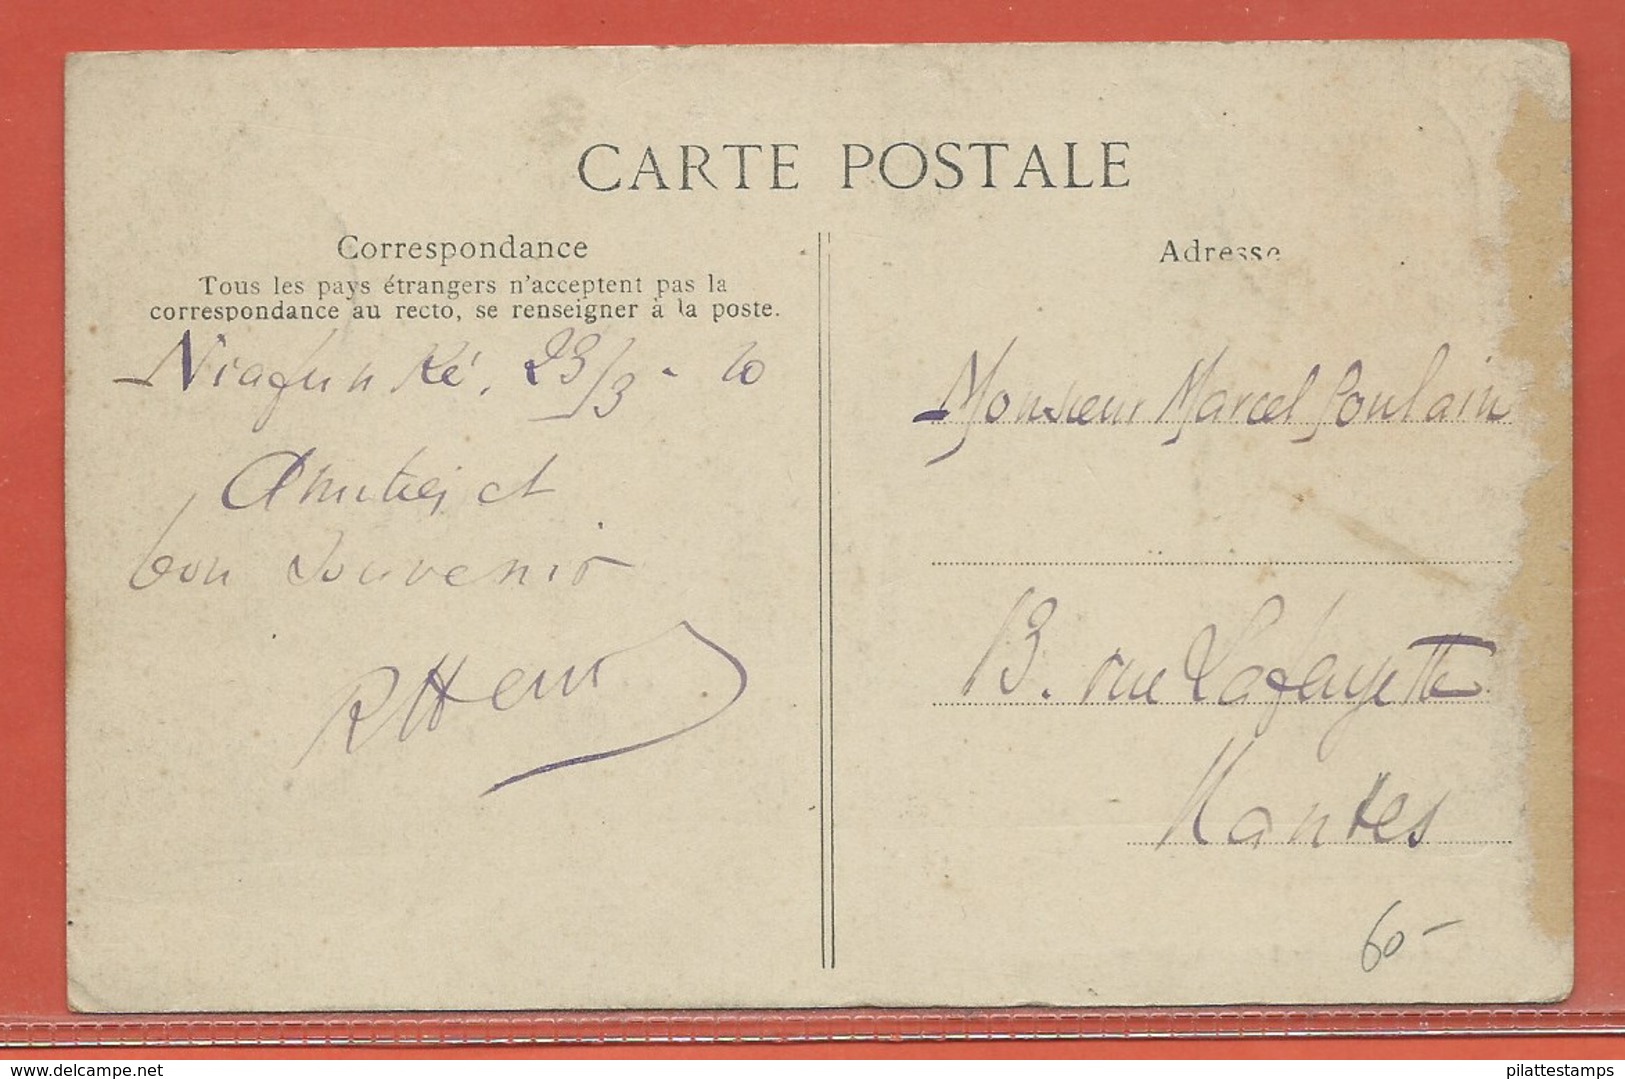 CARTE POSTALE
Correspondance
Tous les pays étrangers n'acceptent pas la
correspondance au recto, se renseigner à la poste.
Niafunké, 23/3 - 10
Amitiés et
bon souvenir
Adresse
Monsieur Marcel Poulain
13. rue Lafayette
Nantes
60-
delcampe.net
pilattestamps